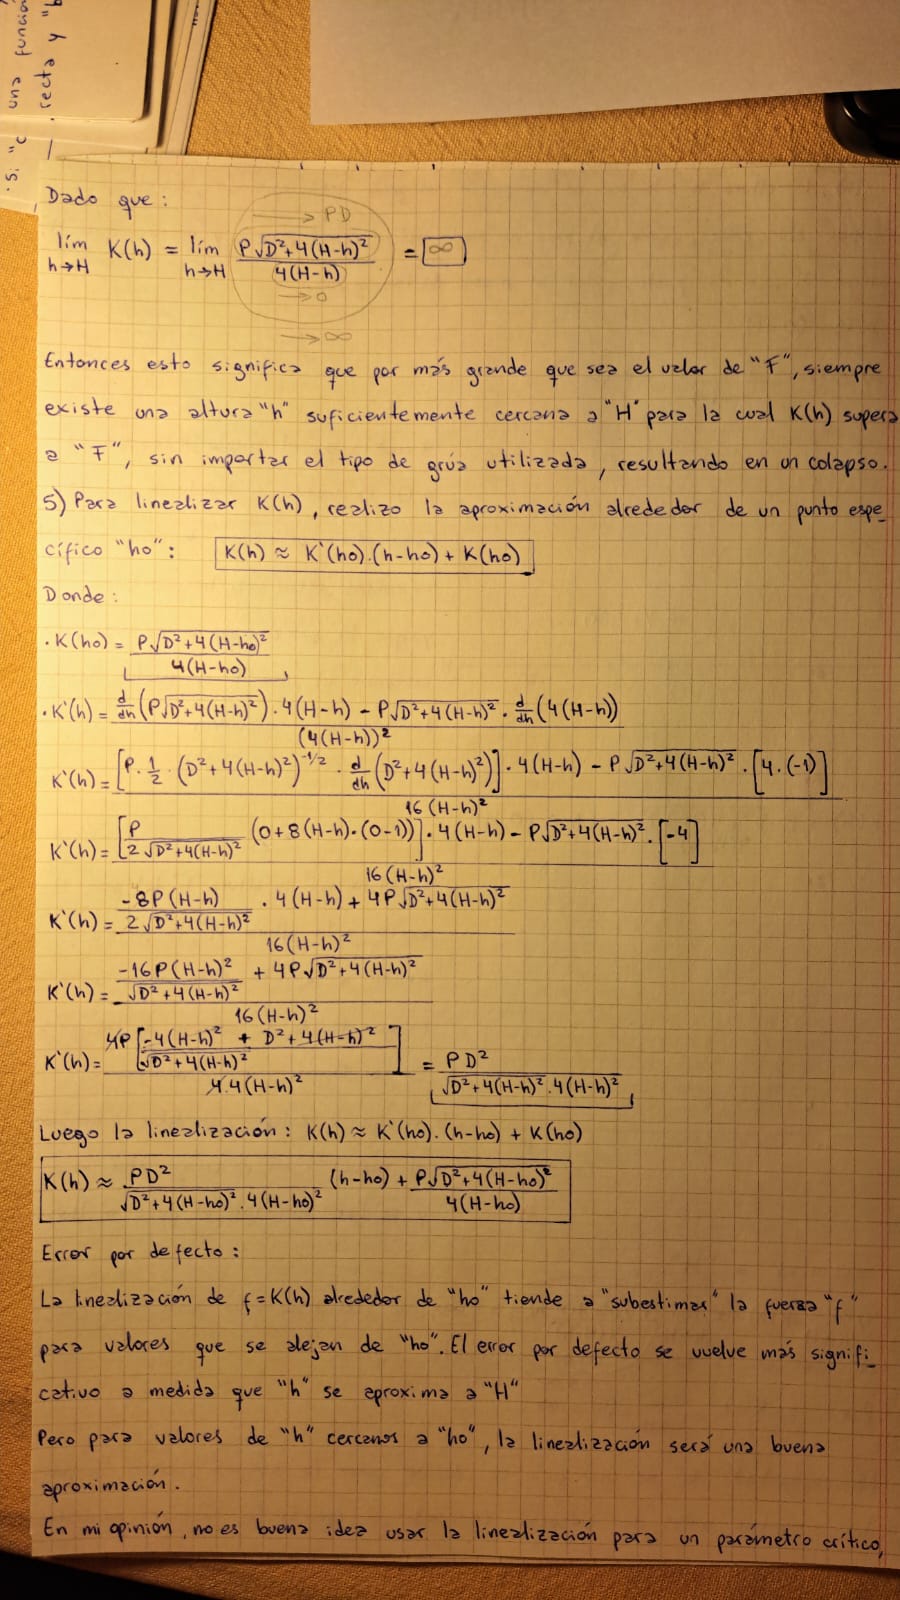 .5. "c una función
recta y "b
Dado que:
lím h→H K(h) = lím h→H P√(D²+4(H-h)²) / 4(H-h) = ∞
→ PD
→ 0
→ ∞
Entonces esto significa que por más grande que sea el valor de "F", siempre
existe una altura "h" suficientemente cercana a "H" para la cual K(h) supera
a "F", sin importar el tipo de grúa utilizada, resultando en un colapso.
5) Para linealizar K(h), realizo la aproximación alrededor de un punto espe
cífico "ho": K(h) ≈ K'(ho).(h-ho) + K(ho)
Donde:
.K(ho) = P√(D²+4(H-ho)²) / 4(H-ho)
.K'(h) = [d/dh (P√(D²+4(H-h)²)) . 4(H-h) - P√(D²+4(H-h)²) . d/dh (4(H-h))] / (4(H-h))²
K'(h) = [[P. 1/2 . (D²+4(H-h)²)^(-1/2) . d/dh (D²+4(H-h)²)] . 4(H-h) - P√(D²+4(H-h)²) . [4.(-1)]] / 16(H-h)²
K'(h) = [[P / 2√(D²+4(H-h)²) (0+8(H-h).(0-1))] . 4(H-h) - P√(D²+4(H-h)²) . [-4]] / 16(H-h)²
K'(h) = [-8P(H-h) / 2√(D²+4(H-h)²) . 4(H-h) + 4P√(D²+4(H-h)²)] / 16(H-h)²
K'(h) = [-16P(H-h)² / √(D²+4(H-h)²) + 4P√(D²+4(H-h)²)] / 16(H-h)²
K'(h) = 4P [(-4(H-h)² + D²+4(H-h)²) / √(D²+4(H-h)²)] / 4.4(H-h)² = PD² / √(D²+4(H-h)²) . 4(H-h)²
Luego la linealización: K(h) ≈ K'(ho). (h-ho) + K(ho)
K(h) ≈ PD² / √(D²+4(H-ho)²) . 4(H-ho)² (h-ho) + P√(D²+4(H-ho)²) / 4(H-ho)
Error por defecto:
La linealización de f=K(h) alrededor de "ho" tiende a "subestimar" la fuerza "f"
para valores que se alejan de "ho". El error por defecto se vuelve más signifi
cativo a medida que "h" se aproxima a "H"
Pero para valores de "h" cercanos a "ho", la linealización será una buena
aproximación.
En mi opinión, no es buena idea usar la linealización para un parámetro crítico,